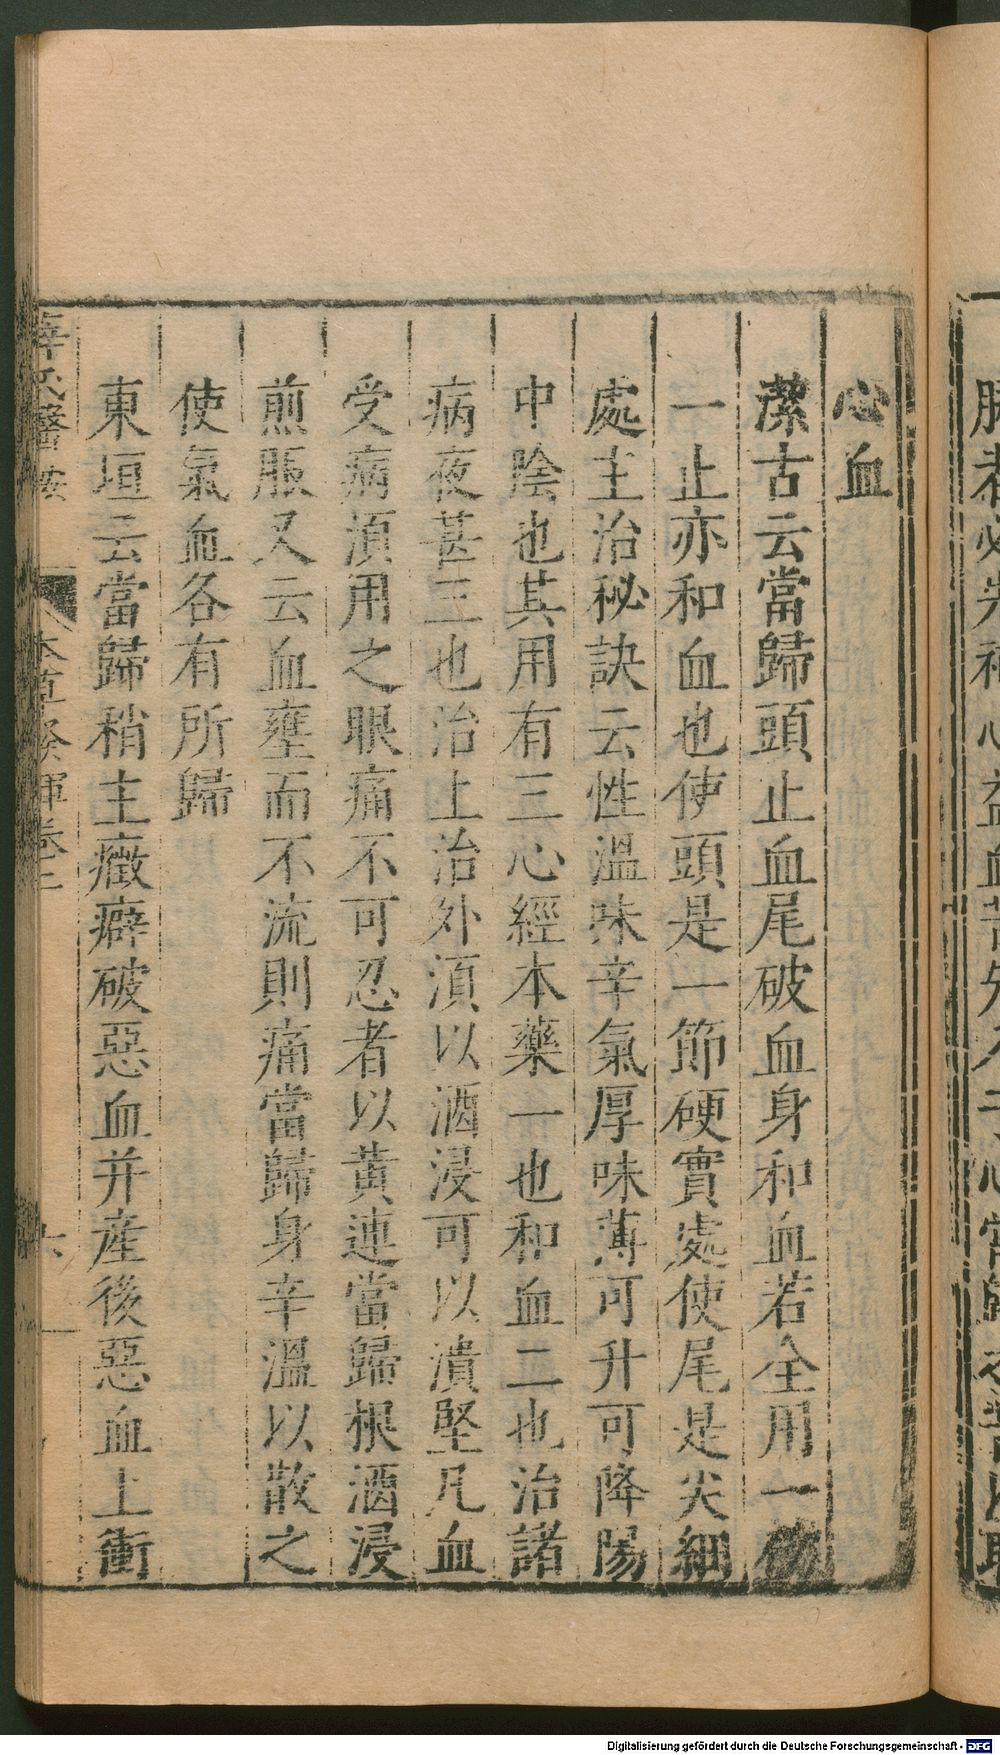 心血
潔古云當歸頭止血尾破血身和血若全用一物
一止亦和血也使頭是一節硬實處使尾是尖細
處主治秘訣云性溫味辛氣厚味薄可升可降陽
中陰也其用有三心經本藥一也和血二也治諸
病夜甚三也治上治外湏以酒浸可以潰堅凡血
受病湏用之眼痛不可忍者以黃連當歸根酒浸
煎服又云血壅而不流則痛當歸身辛溫以散之
使氣血各有所歸
東垣云當歸稍主癥癖破惡血并産後惡血上衝
薛氏醫按 本草發揮卷二 六
Digitalisierung gefördert durch die Deutsche Forschungsgemeinschaft - DFG